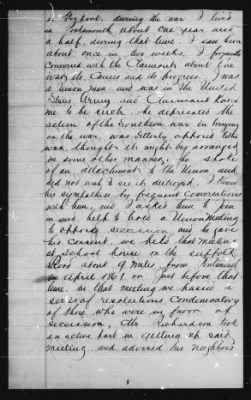 or Gosport. during the war I lived
in Portsmouth about one year and
a half, during that time I saw him
about once in two weeks, I frequently
conversed with the Claimant about the
war, its Causes and its progress. I was
a Union man and was in the United
States Army and Claimant knew
me to be such. He deprecated the
action of the Southern men in bringing
on the war, was bitterly opposed to the
war, thought it might be arranged
in some other manner, he spoke
of an attachment to the Union and
did not wish to see it destroyed. I knew
his sympathies by frequent conversations
with him, and I asked him to join
in and help to hold a Union Meeting
to oppose secession and he gave
his consent. we held that meeting
at school house on the Suffolk
Road about 9 miles from Portsmouth
in April 1861. or just before that
time. at that meeting we passed a
series of resolutions Condemnatory
of those who were in favor of
secession, Mr Richardson took
an active part in getting up said
meeting and advised his neighbors